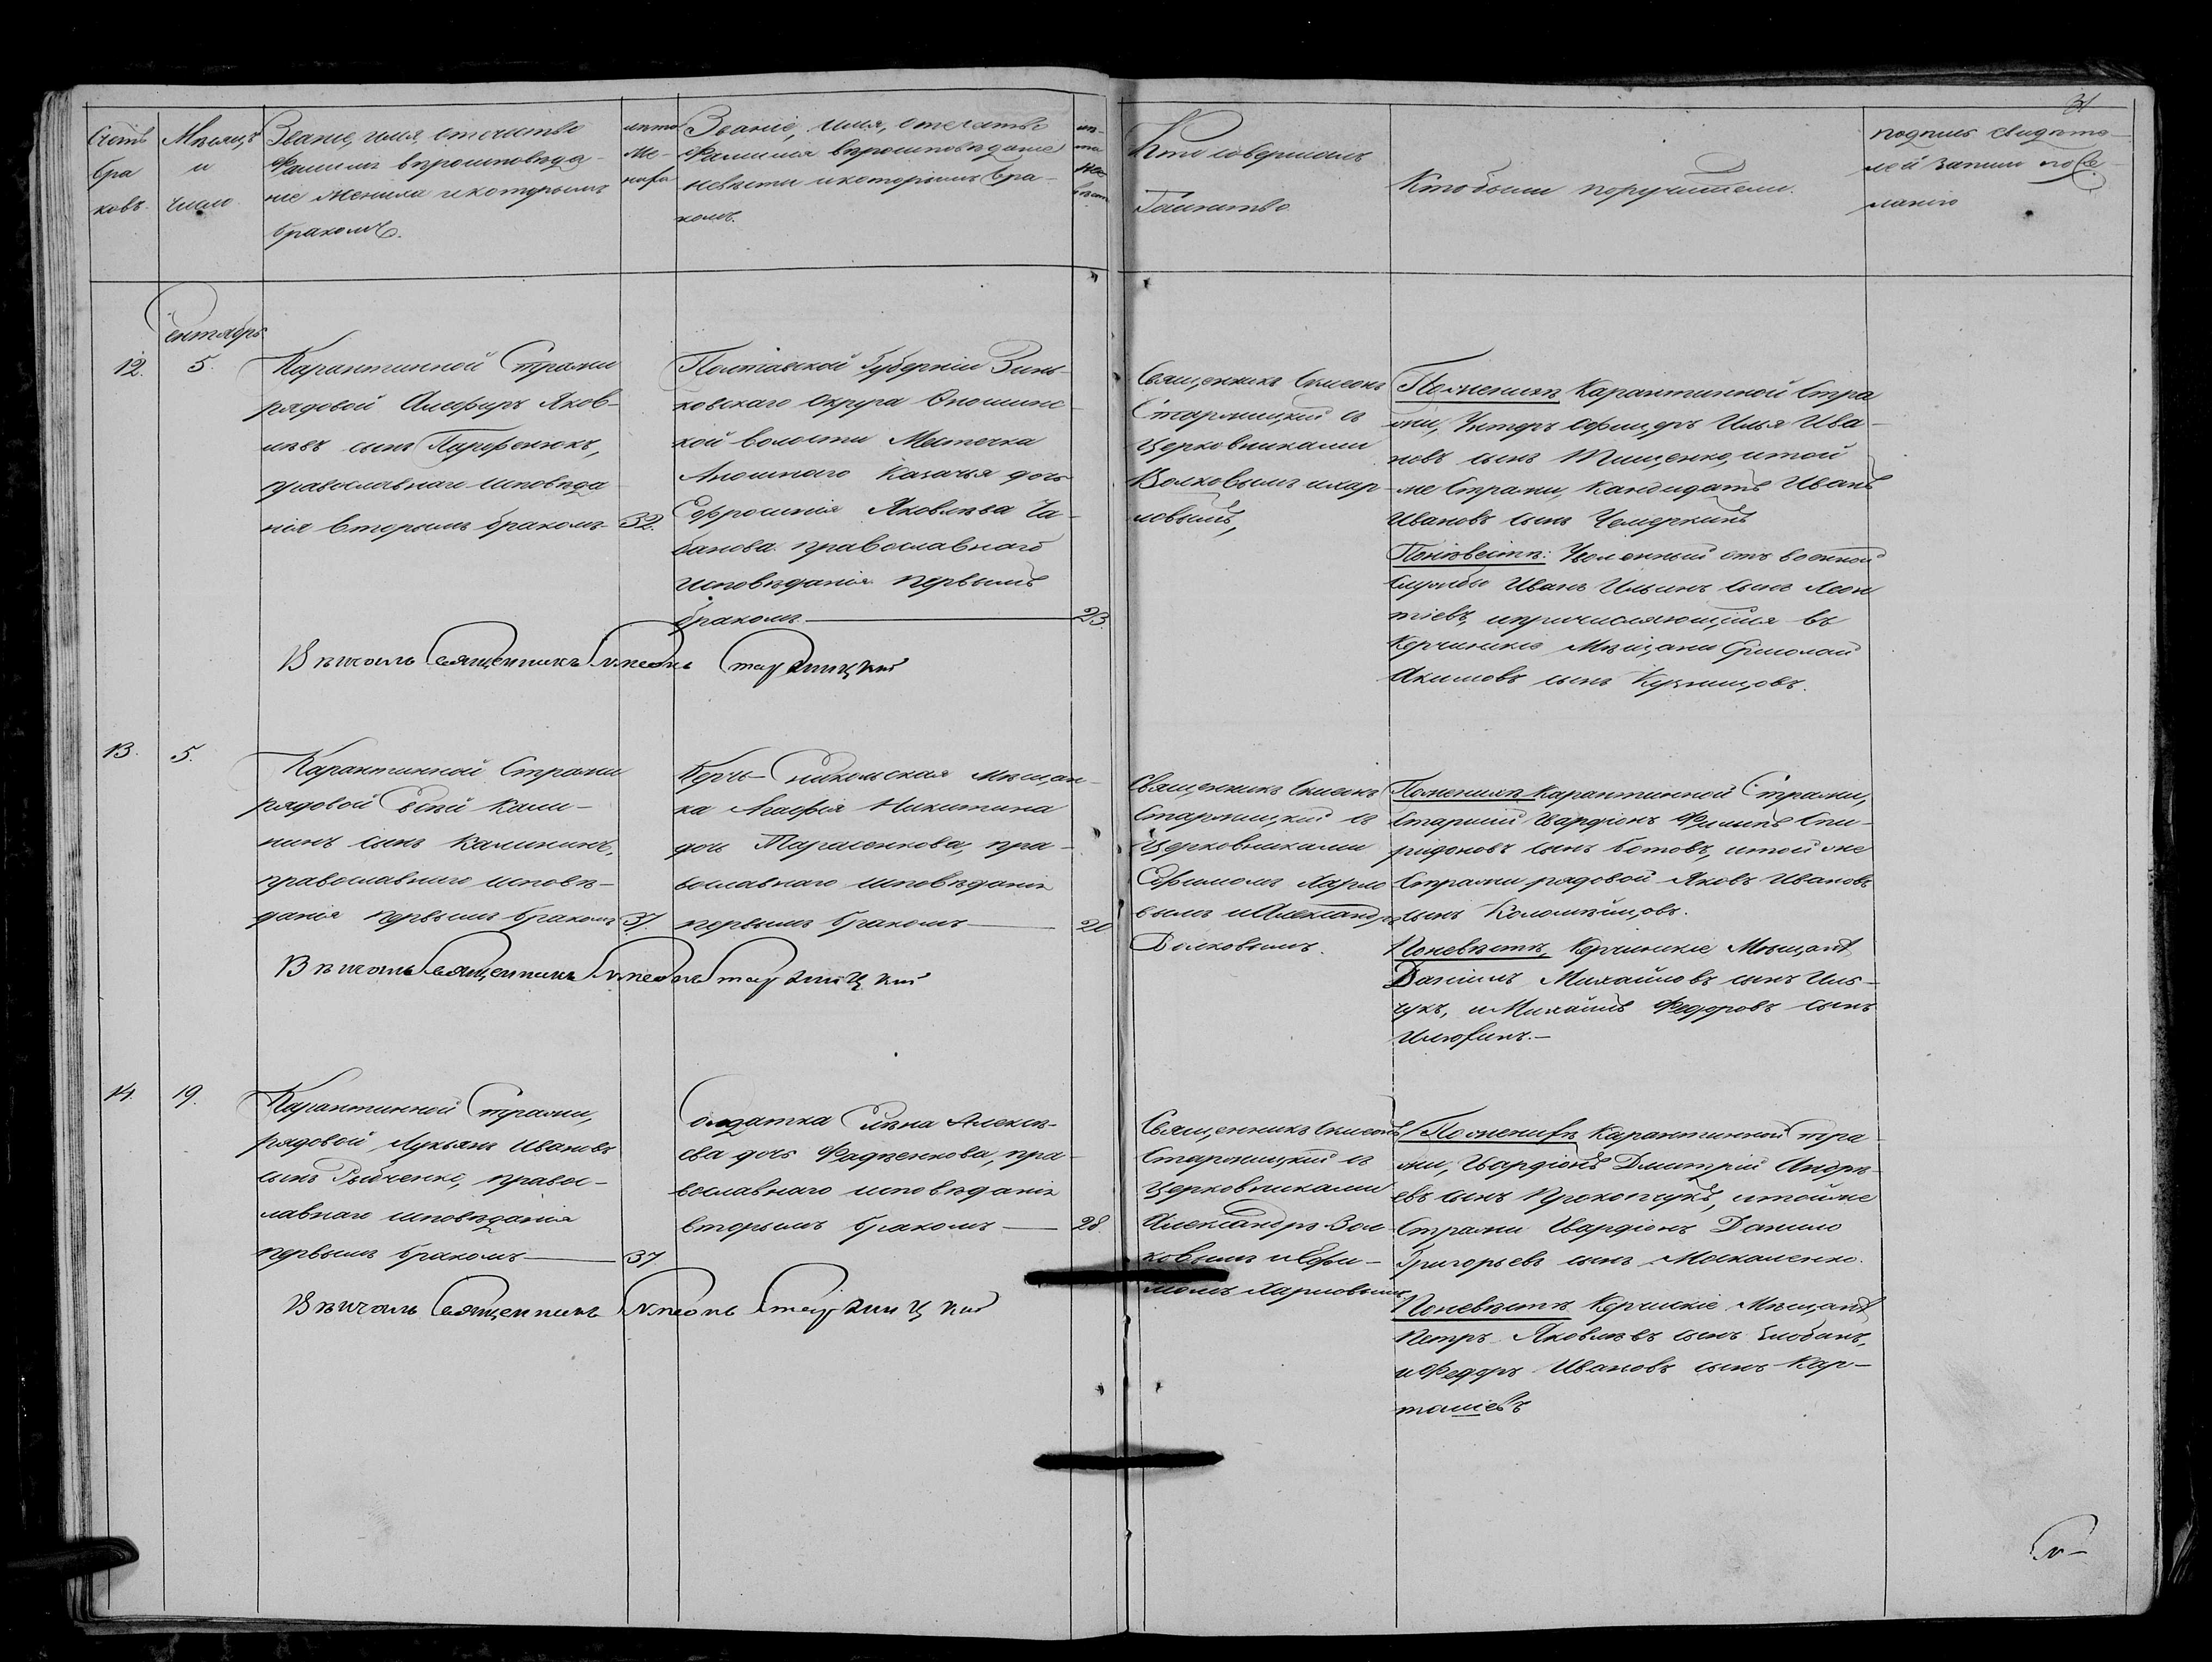 31
Счетъ
бра
ковъ.
Мѣсяцъ
и
число
Званіе, имя, отечество
Фамилія вѣроисповѣда-
ніе Жениха и которымъ
бракомъ.
лѣта
Же-
ниха
Званіе, имя, отечество
Фамилія вѣроисповѣданіе
невѣсты и которымъ бра-
комъ.
лѣ-
та
не-
вѣсты
Кто совершалъ
Таинство
Кто были поручители.
подпись свидѣте-
лей записи по же-
ланію
Сентябрь
12.
5.
Карантинной Стражи
рядовой Яков-
левъ сынъ Парфенюкъ,
православнаго исповѣда
нія вторымъ бракомъ
32.
Полтавской Губерніи Зинь-
ковскаго Округа Опошнянс-
кой волости Местечка
Казачья дочь
Ефросинія Яковлева Ча-
банова православнаго
исповѣданія первымъ
бракомъ
23.
Священникъ Симеонъ
Старжицкій съ
церковниками
Волковымъ и Хар-
ловымъ,
По женихѣ Карантинной Стра
жи, Унтеръ Офицеръ Илья Ива-
новъ сынъ Тищенко, и той
же Стражи, Кандидатъ Иванъ
Ивановъ сынъ Чемеркинъ
По невѣстѣ: Уволенный отъ военной
Службы Иванъ Ильинъ сынъ Леон
тіевъ, и причисляющійся въ
Керчинскіе Мѣщане Ермолай
Акимовъ сынъ Кузнецовъ.
Вѣнчалъ Священникъ Симеонъ Старжицкій
13.
5.
Карантинной Стражи
рядовой Евсей Кали-
нинъ сынъ Калининъ,
православнаго исповѣ-
данія первымъ бракомъ
37.
Керчь-Еникольская мѣщан-
ка Агафія Никитина
дочь Тарасенкова, пра-
вославнаго исповѣданія
первымъ бракомъ
20
Священникъ Симеонъ
Старжицкій съ
Церковниками
Ефимомъ Харло
вымъ и Александр.
Волковымъ.
По женихѣ Карантинной Стражи,
Старшій Гвардіонъ Филипъ Спи-
ридоновъ сынъ Ботовъ, и той же
Стражи рядовой Яковъ Ивановъ
сынъ Коломѣйцовъ.
По невѣстѣ, Керчинскіе Мѣщане
Даніилъ Михайловъ сынъ Иль-
чукъ, и Михаилъ Федоровъ сынъ
Илюхинъ.-
Вѣнчалъ Священникъ Симеонъ Старжицкій
14.
19.
Карантинной Стражи,
рядовой Лукьянъ Ивановъ
сынъ Рыбченко, правос-
лавнаго исповѣданія
первымъ бракомъ
37
Солдатка Елена Алексѣ-
ева дочь Фадѣенкова, пра-
вославнаго исповѣданія
вторымъ бракомъ
28.
Священникъ Симеонъ
Старжицкій съ
церковниками
Александръ Вол-
ковымъ и Ефи-
момъ Харловымъ
По женихѣ Карантинной Стра-
жи, Гвардіонъ Дмитрій Андре-
евъ сынъ Прокопчукъ, и той же
Стражи Гвардіонъ Данило
Григорьевъ сынъ Москаленко.
По невѣстѣ Керчскіе Мѣщане
Петръ Яковлевъ сынъ Злобинъ,
и Федоръ Ивановъ сынъ Кар-
ташевъ
Вѣнчалъ Священникъ Симеонъ Старжицкій